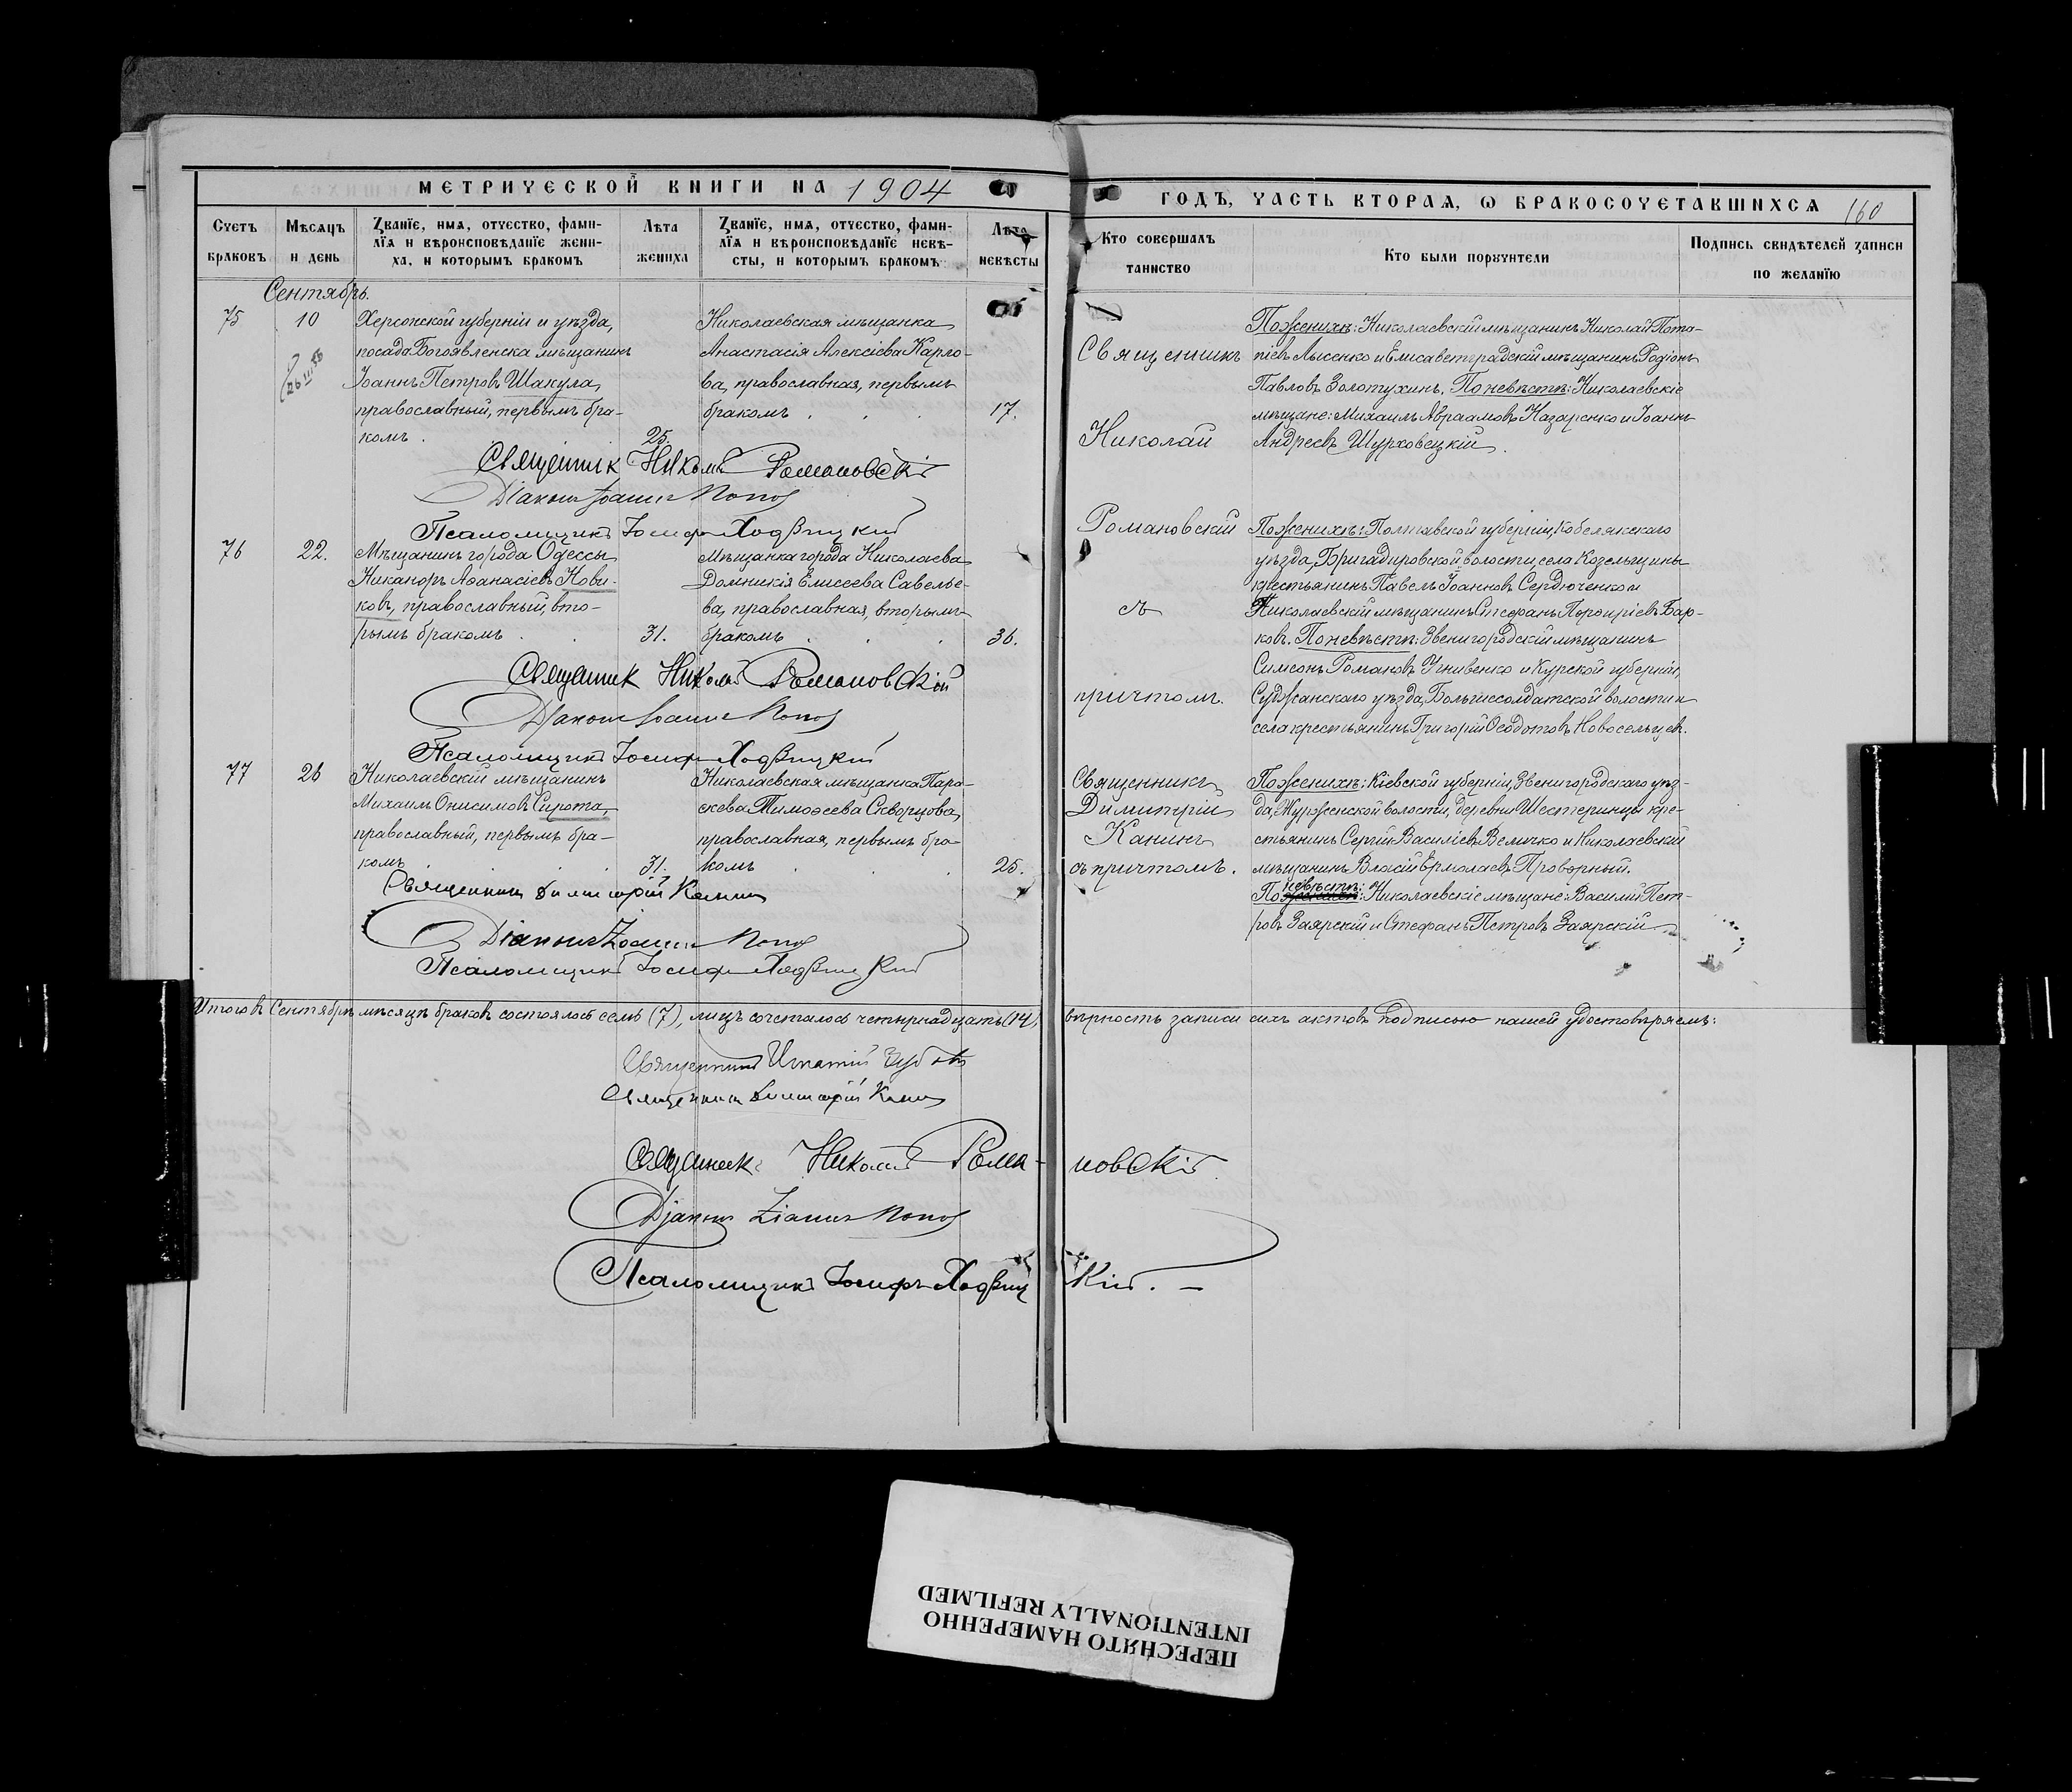 МЕТРИЧЕСКОЙ КНИГИ НА 1904
ГОДЪ, ЧАСТЬ ВТОРАЯ, Ѡ БРАКОСОЧЕТАВШИХСЯ 160
Счетъ браковъ
Мѣсяцъ и день
Званїе, имя, отчество, фами-
лїя и вѣроисповѣданїе жени-
ха, и которымъ бракомъ
Лѣта жениха
Званїе, имя, отчество, фами-
лїя и вѣроисповѣданїе невѣ-
сты, и которымъ бракомъ
Лѣта невѣсты
Кто совершалъ таинство
Кто были поручители
Подпись свидѣтелей записи по желанїю
Сентябрь.
75
10
Херсонской губерніи и уѣзда,
посада Богоявленска мѣщанинъ
Іоаннъ Петровъ Шакула,
православный, первымъ бра-
комъ.
25.
Николаевская мѣщанка
Анастасія Алексіева Карпо-
ва, православная, первымъ
бракомъ . . .
17.
Священникъ
Николай
Романовскій
съ
причтомъ.
По женихѣ: Николаевскій мѣщанинъ Николай Пота-
піевъ Лысенко и Елисаветградскій мѣщанинъ Родіонъ
Павловъ Золотухинъ. По невѣстѣ: Николаевскіе
мѣщане: Михаилъ Авраамовъ Назаренко и Іоаннъ
Андреевъ Шурховецкій.
Священник Николай Романовскій
Діаконъ Іоаннъ Попов
Псаломщикъ Іосифъ Ходзицкій
76
22.
Мѣщанинъ города Одессы
Никаноръ Аѳанасіевъ Нови-
ковъ, православный, вто-
рымъ бракомъ . .
31.
Мѣщанка города Николаева
Домникія Елисеева Савелье-
ва, православная, вторымъ
бракомъ . . .
36.
По женихѣ: Полтавской губерніи, Кобелякскаго
уѣзда, Бригадировской волости, села Козельщины
крестьянинъ Павелъ Іоанновъ Сердюченко и
Николаевскій мѣщанинъ Стефанъ Порфиріевъ Бар-
ковъ. По невѣстѣ: Звенигородскій мѣщанинъ
Симеонъ Романовъ Гнивенко и Курской губерніи,
Суджанскаго уѣзда, Большесолдатской волости и
села крестьянинъ Григорій Ѳеодотовъ Новосельцевъ.
Священник Николай Романовскій
Діаконъ Іоаннъ Попов
Псаломщикъ Іосифъ Ходзицкій
77
26
Николаевскій мѣщанинъ
Михаилъ Онисимовъ Сирота,
православный, первымъ бра-
комъ . . .
31.
Николаевская мѣщанка Пара-
скева Тимоѳеева Скворцова,
православная, первымъ бра-
комъ . . .
25.
Священникъ
Димитрій
Канинъ
съ причтомъ.
По женихѣ: Кіевской губерніи, Звенигородскаго уѣз-
да, Журженской волости, деревни Шестеринцы кре-
стьянинъ Сергій Василіевъ Величко и Николаевскій
мѣщанинъ Власій Ермолаевъ Проворный.
По невѣстѣ: Николаевскіе мѣщане: Василій Пет-
ровъ Заярскій и Стефанъ Петровъ Заярскій
Священникъ Димитрій Канин
Діаконъ Іоаннъ Попов
Псаломщикъ Іосифъ Ходзицкій
Итого въ Сентябрѣ мѣсяцѣ браковъ состоялось семь (7), лицъ сочеталось четырнадцать (14), вѣрность записи сихъ актовъ подписью нашей удостовѣряемъ:
Священникъ Игнатій
Священникъ Димитрій Канин
Священникъ Николай Романовскій
Діаконъ Іоаннъ Попов
Псаломщикъ Іосифъ Ходзицкій. –
ПЕРЕСНЯТО НАМЕРЕННО
INTENTIONALLY REFILMED